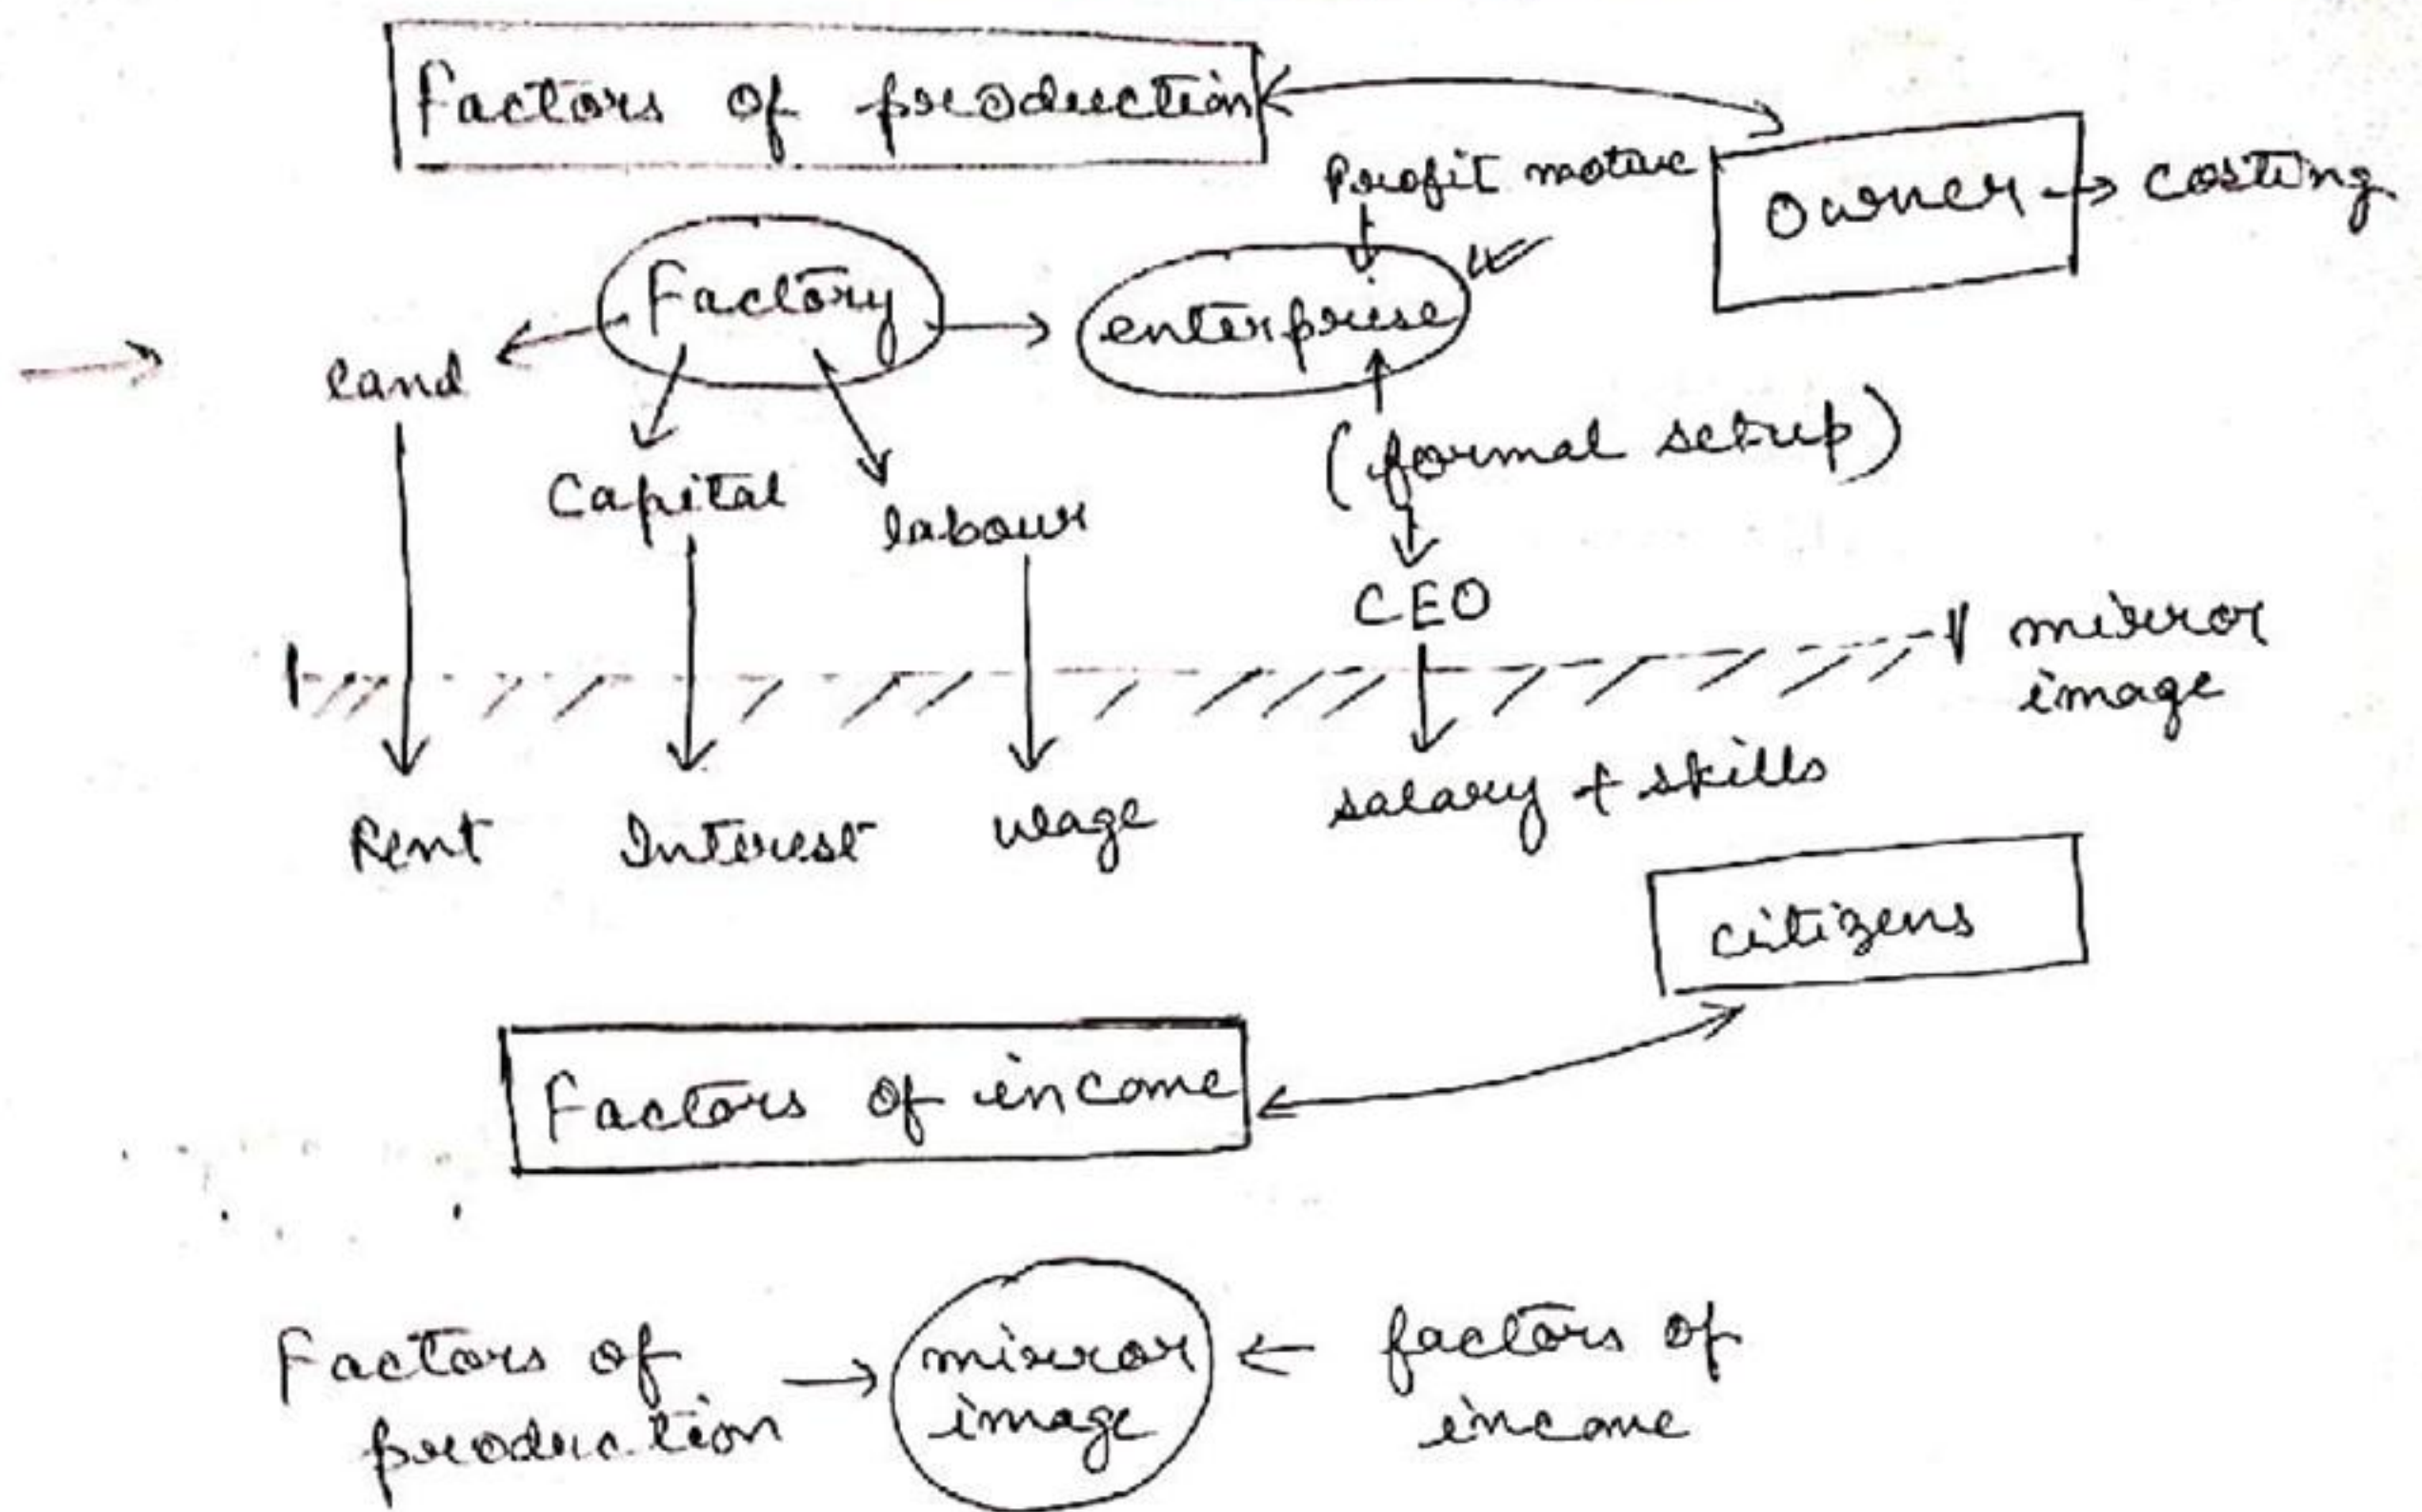 Factors of production
Profit motive
Owner → costing
Factory
enterprise
land
(formal setup)
Capital
labour
CEO
mirror
image
Rent Interest wage salary + skills
citizens
Factors of income
Factors of
production → mirror
image ← factors of
income